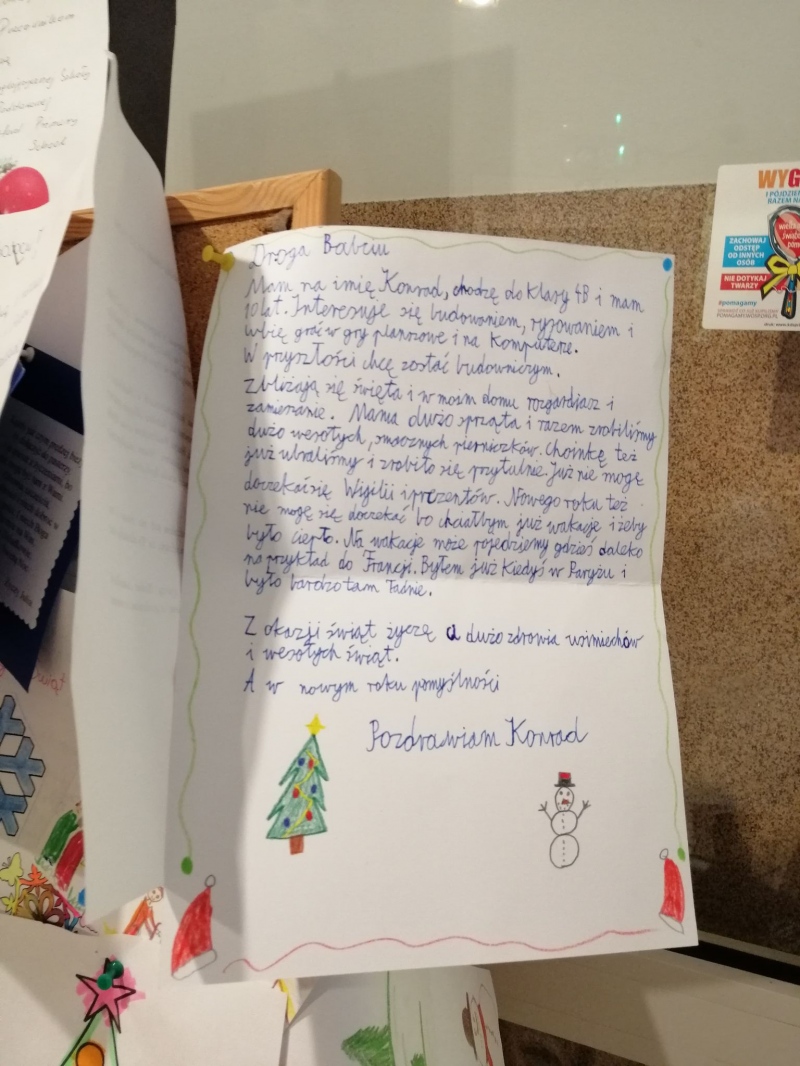 Szkoły
Primary
School
Droga Babciu
Mam na imię Konrad, chodzę do klasy 4B i mam
10 lat. Interesuje się budowaniem, rysowaniem i
lubię grać w gry planszowe i na komputerze.
W przyszłości chcę zostać budowniczym.
Zbliżają się święta i w moim domu rozgardiasz i
zamieszanie. Mama dużo sprząta i razem zrobiliśmy
dużo wesołych, smacznych pierniczków. Choinkę też
już ubraliśmy i zrobiło się przytulnie. Już nie mogę
doczekać się Wigilii i prezentów. Nowego roku też
nie mogę się doczekać bo chciałbym już wakacje i żeby
było ciepło. Na wakacje może pojedziemy gdzieś daleko
na przykład do Francji. Byłem już kiedyś w Paryżu i
było bardzo tam ładnie.
Z okazji świąt życzę dużo zdrowia uśmiechów
i wesołych świąt.
A w nowym roku pomyślności
Pozdrawiam Konrad
WYG
I PÓJDZIE
RAZEM
ZACHOWAJ
ODSTĘP
OD INNYCH
OSÓB
NIE DOTYKAJ
TWARZY
#pomagamy